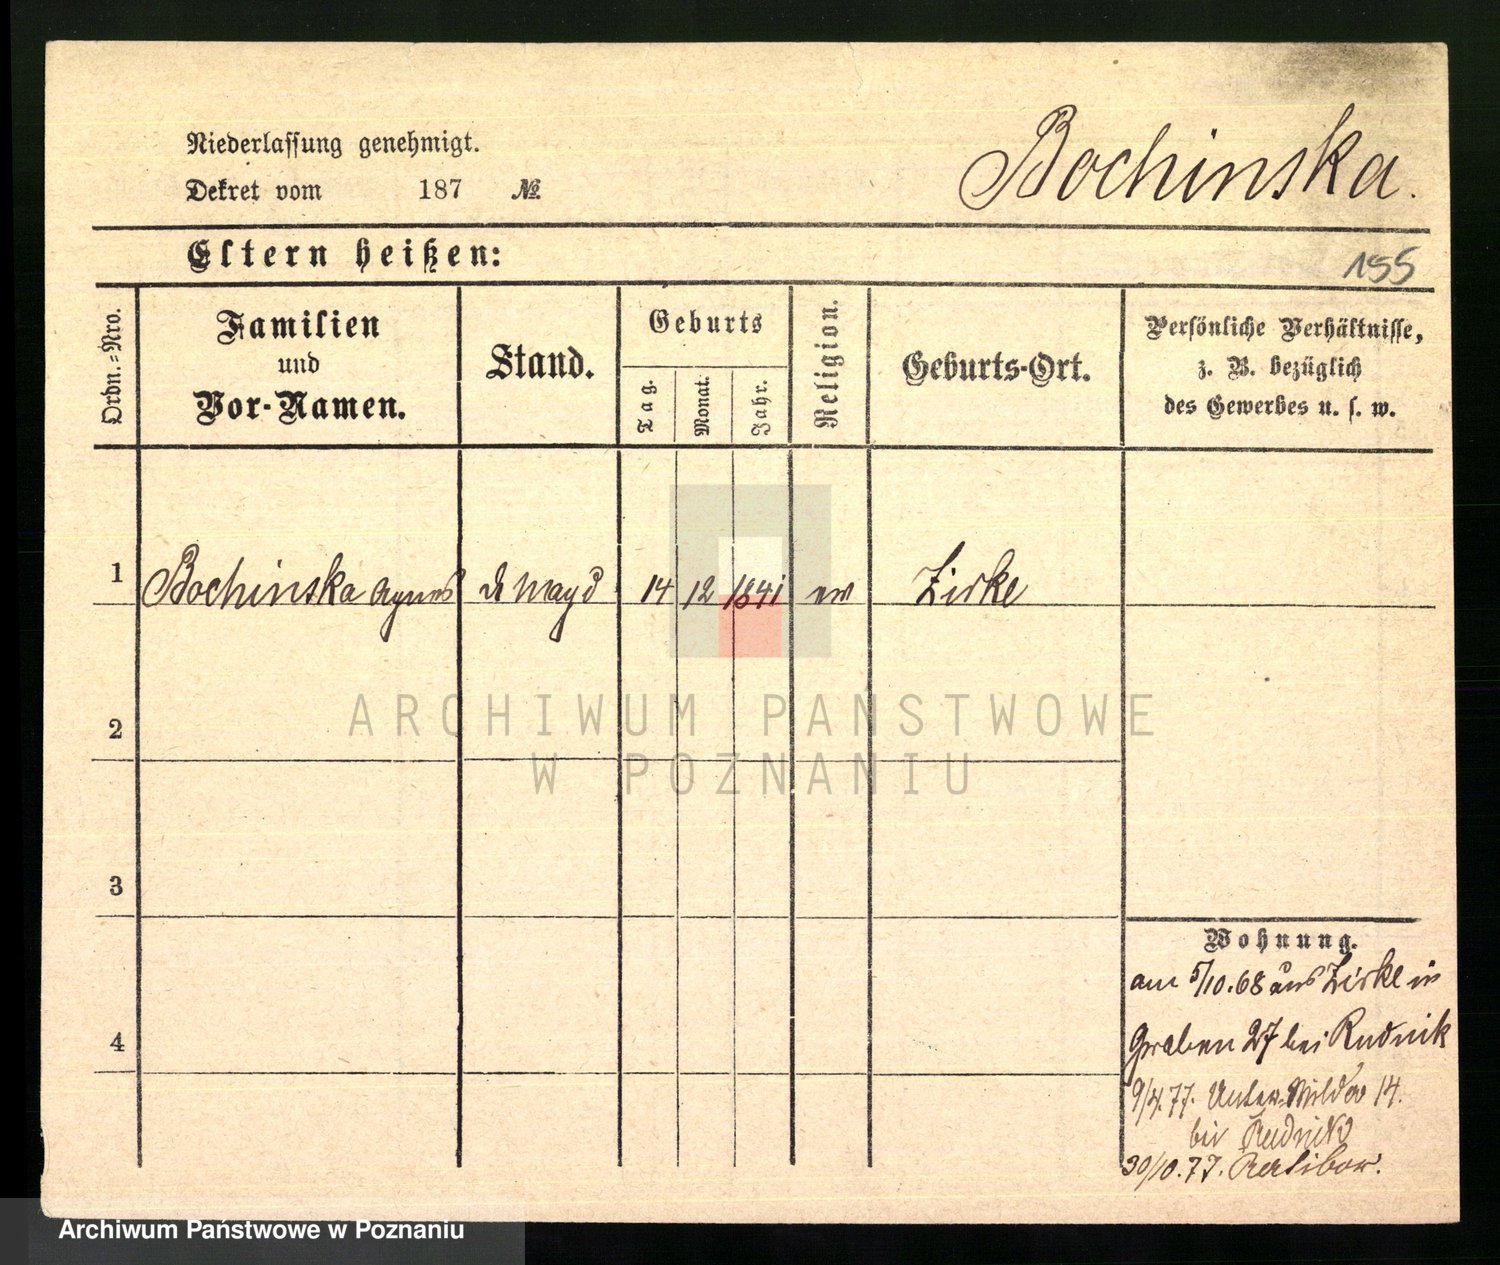 Niederlassung genehmigt.
Dekret vom 187 №.
Bochinska.
Eltern heißen:
155
Ordn.=Nro.
Familien
und
Vor-Namen.
Stand.
Geburts
Tag.
Monat.
Jahr.
Religion.
Geburts-Ort.
Persönliche Verhältnisse,
z. B. bezüglich
des Gewerbes u. s. w.
1 Bochinska Agnes d. Magd 14 12 1841 ev Zirke
2
3
4
Wohnung.
am 5/10.68 aus Zirke in
Graben 27 bei Rudnik
9/4.77. Unter-Wilda 14.
bei Rudnik
30/10.77. Ratibor.
ARCHIWUM PAŃSTWOWE
W POZNANIU
Archiwum Państwowe w Poznaniu